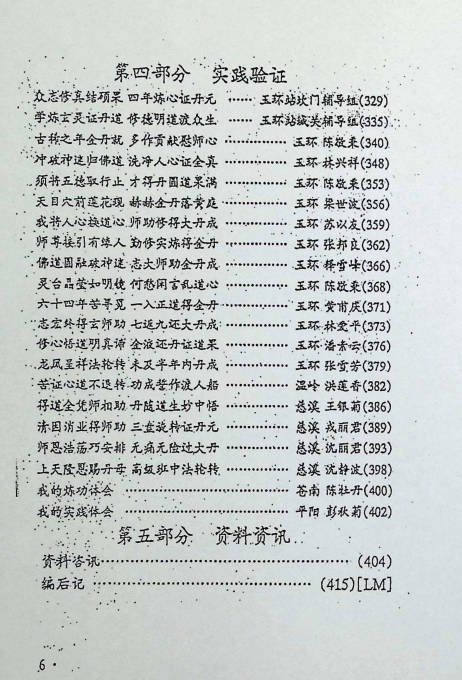 第四部分 实践验证
众志修真结硕果 四年炼心证丹元 …… 玉环站坟门辅导组(329)
学炼玄灵证丹道 修德明道渡众生 …… 玉环站城关辅导组(335)
古稀之年金丹就 多作贡献慰师心 …… 玉环 陈敬来(340)
冲破神迷归佛道 洗净人心证全真 …… 玉环 林兴祥(348)
须将五德取行止 才得丹圆道果满 …… 玉环 陈敬来(353)
天目穴前莲花现 赫赫金丹落黄庭 …… 玉环 梁世波(356)
我将人心换道心 师助修得大丹成 …… 玉环 苏以友(359)
师尊接引有缘人 勤修实炼得金丹 …… 玉环 张邦良(362)
佛道圆融破神迷 志大师助金丹成 …… 玉环 释雪峰(366)
灵台晶莹如明镜 何愁闲言乱道心 …… 玉环 陈敬来(368)
六十四年苦寻觅 一入正道得金丹 …… 玉环 黄甫庆(371)
志宏终得玄师助 七返九还大丹成 …… 玉环 林爱平(373)
修心悟道明真谛 金液还丹证道果 …… 玉环 潘素云(376)
龙凤呈祥法轮转 未及半年内丹成 …… 玉环 张雪芳(379)
苦证心道不退转 功成誓作渡人船 …… 温岭 洪莲香(382)
得道全凭师相助 丹随道生妙中悟 …… 慈溪 王银菊(386)
清因消业得师助 三盘旋转证丹元 …… 慈溪 戎丽君(389)
师恩浩荡巧安排 无痛无险过大丹 …… 慈溪 沈丽君(393)
上天降恩赐丹母 高级班中法轮转 …… 慈溪 沈静波(398)
我的炼功体会 …… 苍南 陈牡丹(400)
我的实践体会 …… 平阳 彭秋菊(402)
第五部分 资料资讯
资料咨讯 …… (404)
编后记 …… (415)[LM]
6 ·